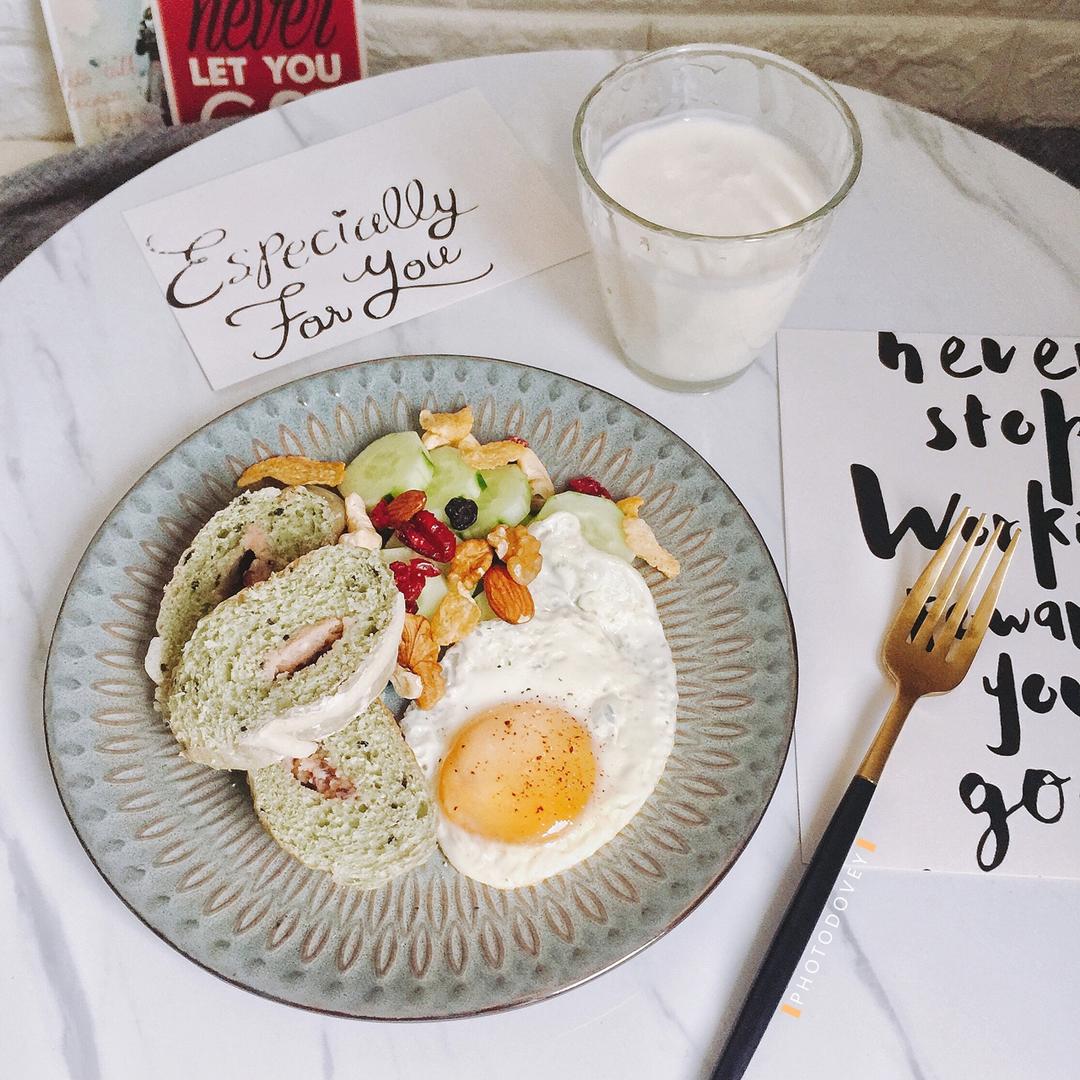 never
LET YOU
Especially
For You
never
stop
Worki
you
go
PHOTODOVEY